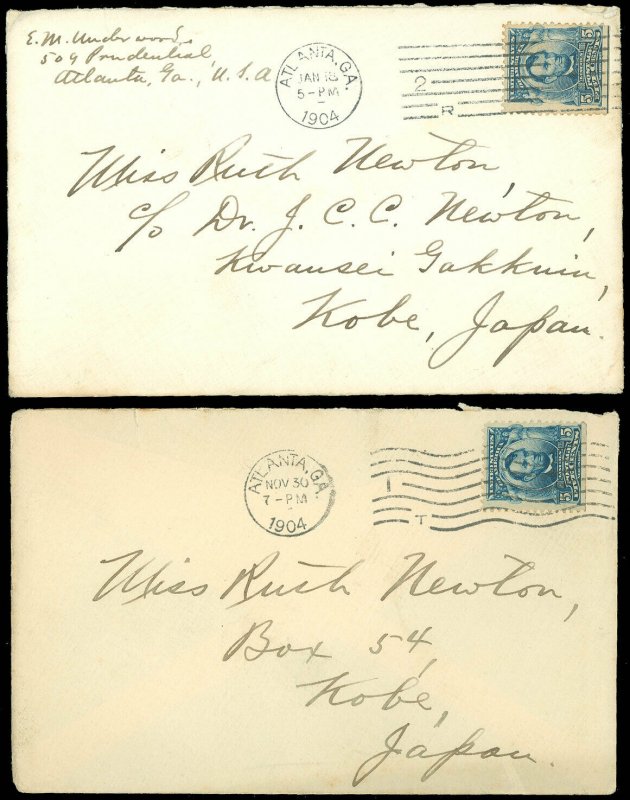 E. M. Underwood,
509 Prudential,
Atlanta, Ga., U.S.A
ATLANTA, GA.
JAN 18
5-PM
1904
2
R
5
5
Miss Ruth Newton,
c/o Dr. J. C. C. Newton,
Kwansei Gakkuin,
Kobe, Japan.
ATLANTA, GA.
NOV 30
7-PM
1904
1
T
5
5
Miss Ruth Newton,
Box 54,
Kobe,
Japan.